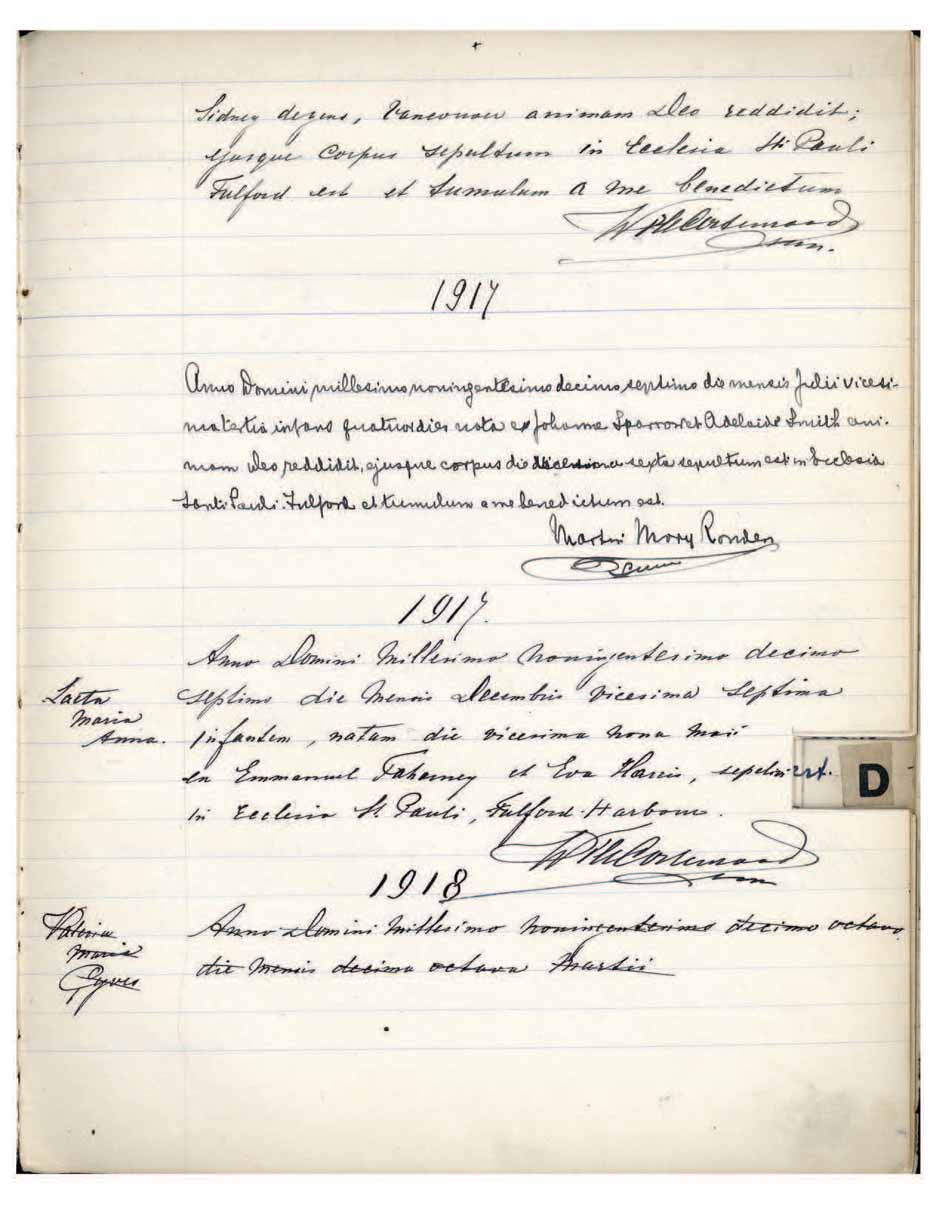 Sidney degens, Vancouver animam Deo reddidit;
ejusque corpus sepultum in Ecclesia Sti Pauli
Fulford est et tumulum a me benedictum
1917
Anno Domini millesimo noningentesimo decimo septimo die mensis Julii vicesi-
ma tertia infans quatuor dies nata ex Johanne Sparrow et Adelaide Smith ani-
mam Deo reddidit, ejusque corpus die sexta sepultum est in Ecclesia
Santi Pauli. Fulford et tumulum a me benedictum est.
Martin Mary Ronden
1917.
Anno Domini Millesimo noningentesimo decimo
Laeta
Maria
Anna.
septimo die Mensis Decembris vicesima septima
infantem, natam die vicesima nona Maii
ex Emmanuel Taharney et Eva Harris,
in Ecclesia St. Pauli, Fulford-Harbour.
D
1918
Valeria
Maria
Gyves
Anno Domini Millesimo noningentesimo decimo octavo
die Mensis decima octava Martii